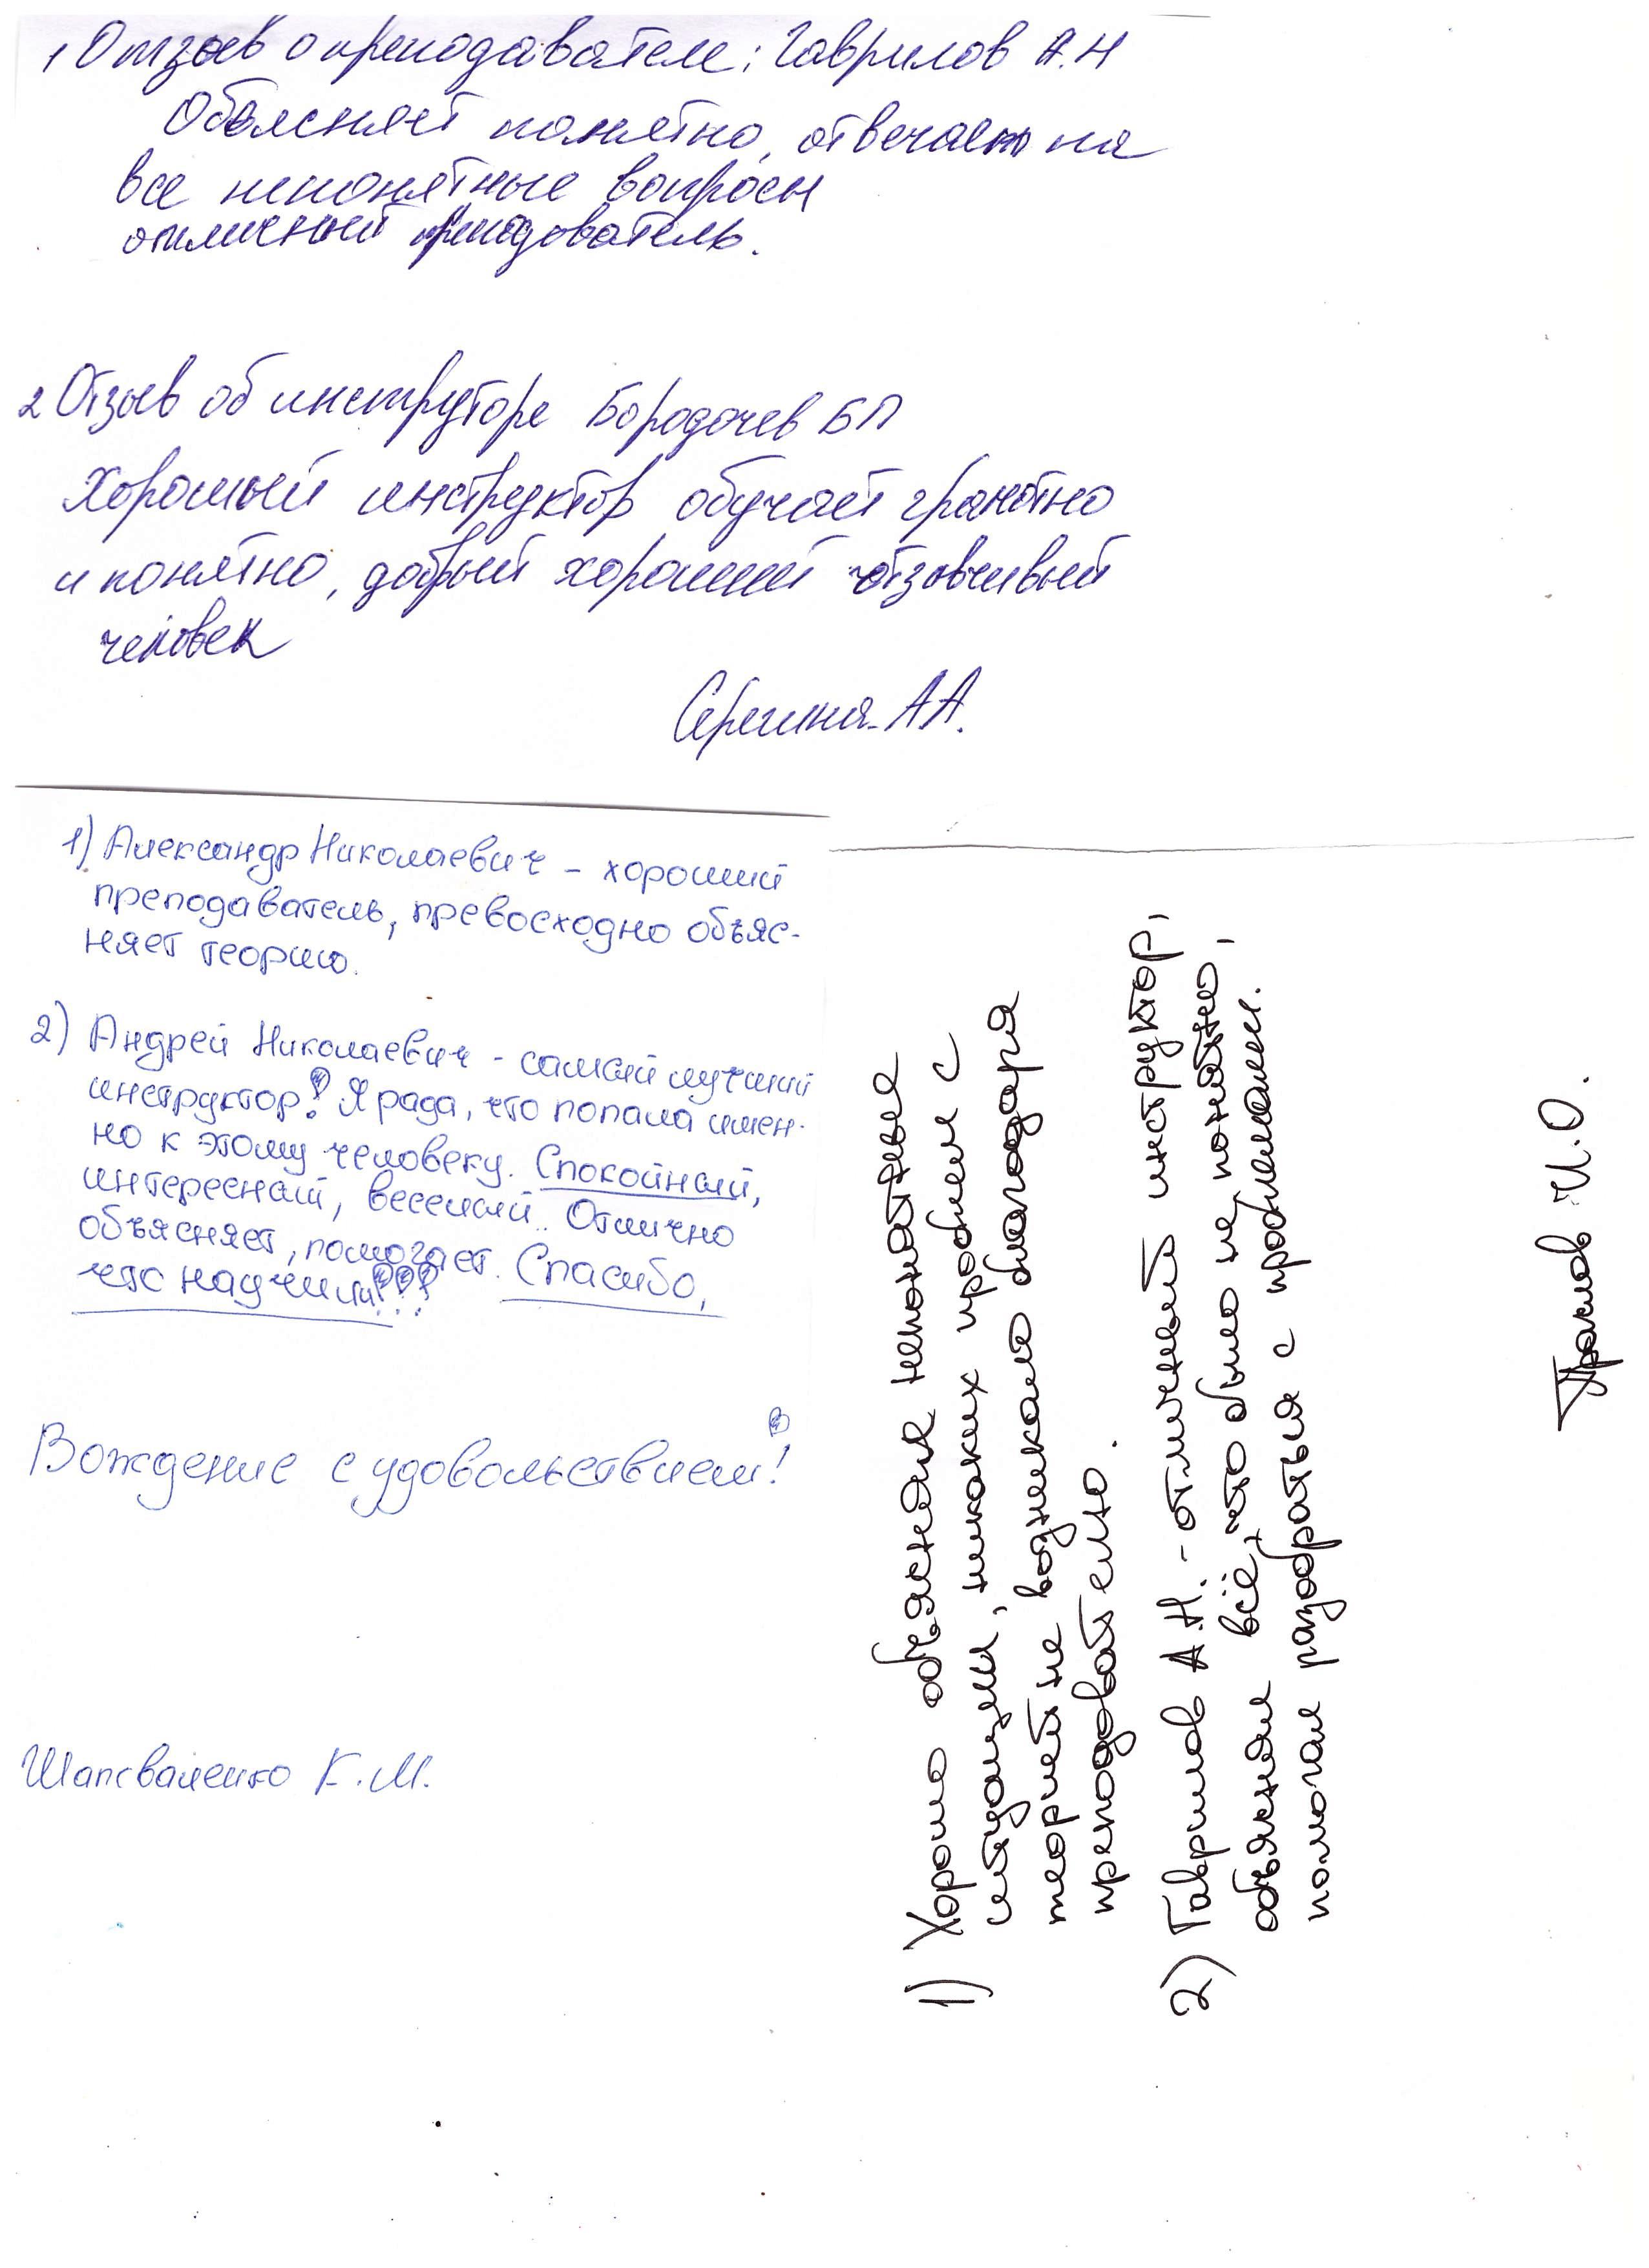 1 Отзыв о преподавателе: Гаврилов А.Н
Объясняет понятно, отвечает на
все непонятные вопросы
отличный преподователь.
2 Отзыв об инструторе Бородачев БП
Хороший инструктор обучает грамотно
и понятно, добрый хороший отзовчивый
человек
Серегина А А.
1) Александр Николаевич - хороший
преподаватель, превосходно объяс-
няет теорию.
2) Андрей Николаевич - самый лучший
инструктор! Я рада, что попала имен-
но к этому человеку. Спокойный,
интересный, веселый. Отлично
объясняет, помогает. Спасибо,
что научили!!!
Вождение с удовольствием!
К.М.
1) Хорошо объяснял непонятные
ситуации, никаких проблем с
теорией не возникало благодаря
преподователю.
2) Гаврилов А.Н. - отличный инструктор,
объяснял всё, что было не понятно,
помогал разобраться с проблемами.
И.О.